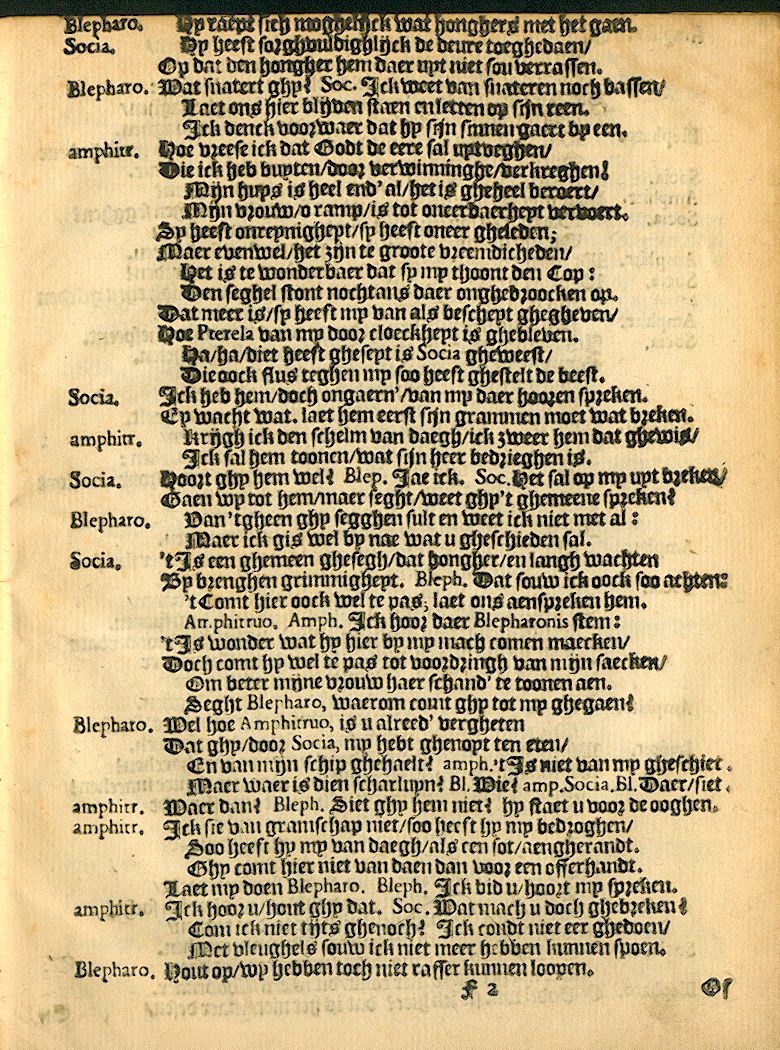 Blepharo. Hy raept sich moghelijck wat honghers met het gaen.
Socia. Hy heeft sorghvuldighlijck de deure toeghedaen/
Op dat den hongher hem daer uyt niet sou verrassen.
Blepharo. Wat snatert ghy? Soc. Ick weet van snateren noch bassen/
Laet ons hier blijven staen en letten op sijn reen.
Ick denck voorwaer dat hy sijn sinnen gaert by een.
amphitr. Hoe vreese ick dat Godt de eere sal uytveghen/
Die ick heb buyten/door verwinninghe/verkreghen!
Mijn huys is heel end' al/het is gheheel beroert/
Mijn vrouw/o ramp/is tot oneerdaerheyt vervoert.
Sy heeft onreynigheyt/sy heeft oneer gheleden;
Maer evenwel/het zijn te groote vreemdicheden/
Het is te wonderbaer dat sy my thoont den Cop:
Den seghel stont nochtans daer onghebroocken op.
Dat meer is/sy heeft my van als bescheyt ghegheven/
Hoe Pterela van my door cloeckheyt is ghebleven.
Ha/ha/diet heeft gheseyt is Socia gheweest/
Die oock flus teghen my soo heeft ghestelt de beest.
Socia. Ick heb hem/doch ongaern'/van my daer hooren spreken.
Ey wacht wat. laet hem eerst sijn grammen moet wat breken.
amphitr. Krijgh ick den schelm van daegh/ick zweer hem dat ghewis/
Ick sal hem toonen/wat sijn heer bedrieghen is.
Socia. Hoort ghy hem wel? Blep. Jae ick. Soc. Het sal op my uyt breken/
Gaen wy tot hem/maer seght/weet ghy't ghemeene spreken?
Blepharo. Van 'tgheen ghy segghen sult en weet ick niet met al:
Maer ick gis wel by nae wat u gheschieden sal.
Socia. 't Is een ghemeen ghesegh/dat hongher/en langh wachten
By brenghen grimmigheyt. Bleph. Dat souw ick oock soo achten:
't Comt hier oock wel te pas, laet ons aenspreken hem.
Am.phitruo. Amph. Ick hoor daer Blepharonis stem:
't Is wonder wat hy hier by my mach comen maecken/
Doch comt hy wel te pas tot voordringh van mijn saecken/
Om beter mijne vrouw haer schand' te toonen aen.
Seght Blepharo, waerom comt ghy tot my ghegaen?
Blepharo. Wel hoe Amphitruo, is u alreed' vergheten
Dat ghy/door Socia, my hebt ghenopt ten eten/
En van mijn schip ghehaelt? amph. 't Is niet van my gheschiet.
Maer waer is dien scharluyn? Bl. Wie? amp. Socia. Bl. Daer/siet.
amphitr. Waer dan? Bleph. Siet ghy hem niet? hy staet u voor de ooghen.
amphitr. Ick sie van gramschap niet/soo heeft hy my bedroghen/
Soo heeft hy my van daegh/als een sot/aengherandt.
Ghy comt hier niet van daen dan voor een offerhandt.
Laet my doen Blepharo. Bleph. Ick bid u/hoort my spreken.
amphitr. Ick hoor u/hout ghy dat. Soc. Wat mach u doch ghebreken?
Com ick niet tijts ghenoch? Ick condt niet eer ghedoen/
Met vleughels souw ick niet meer hebben kunnen spoen.
Blepharo. Hout op/wy hebben toch niet rasser kunnen loopen.
f 2 Of